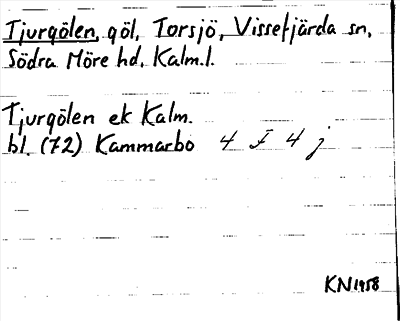 Tjurgölen, göl, Torsjö, Vissefjärda sn,
Södra Möre hd, Kalm.l.
Tjurgölen ek Kalm.
bl. (72) Kammarbo 4 F 4 j
KN 1958